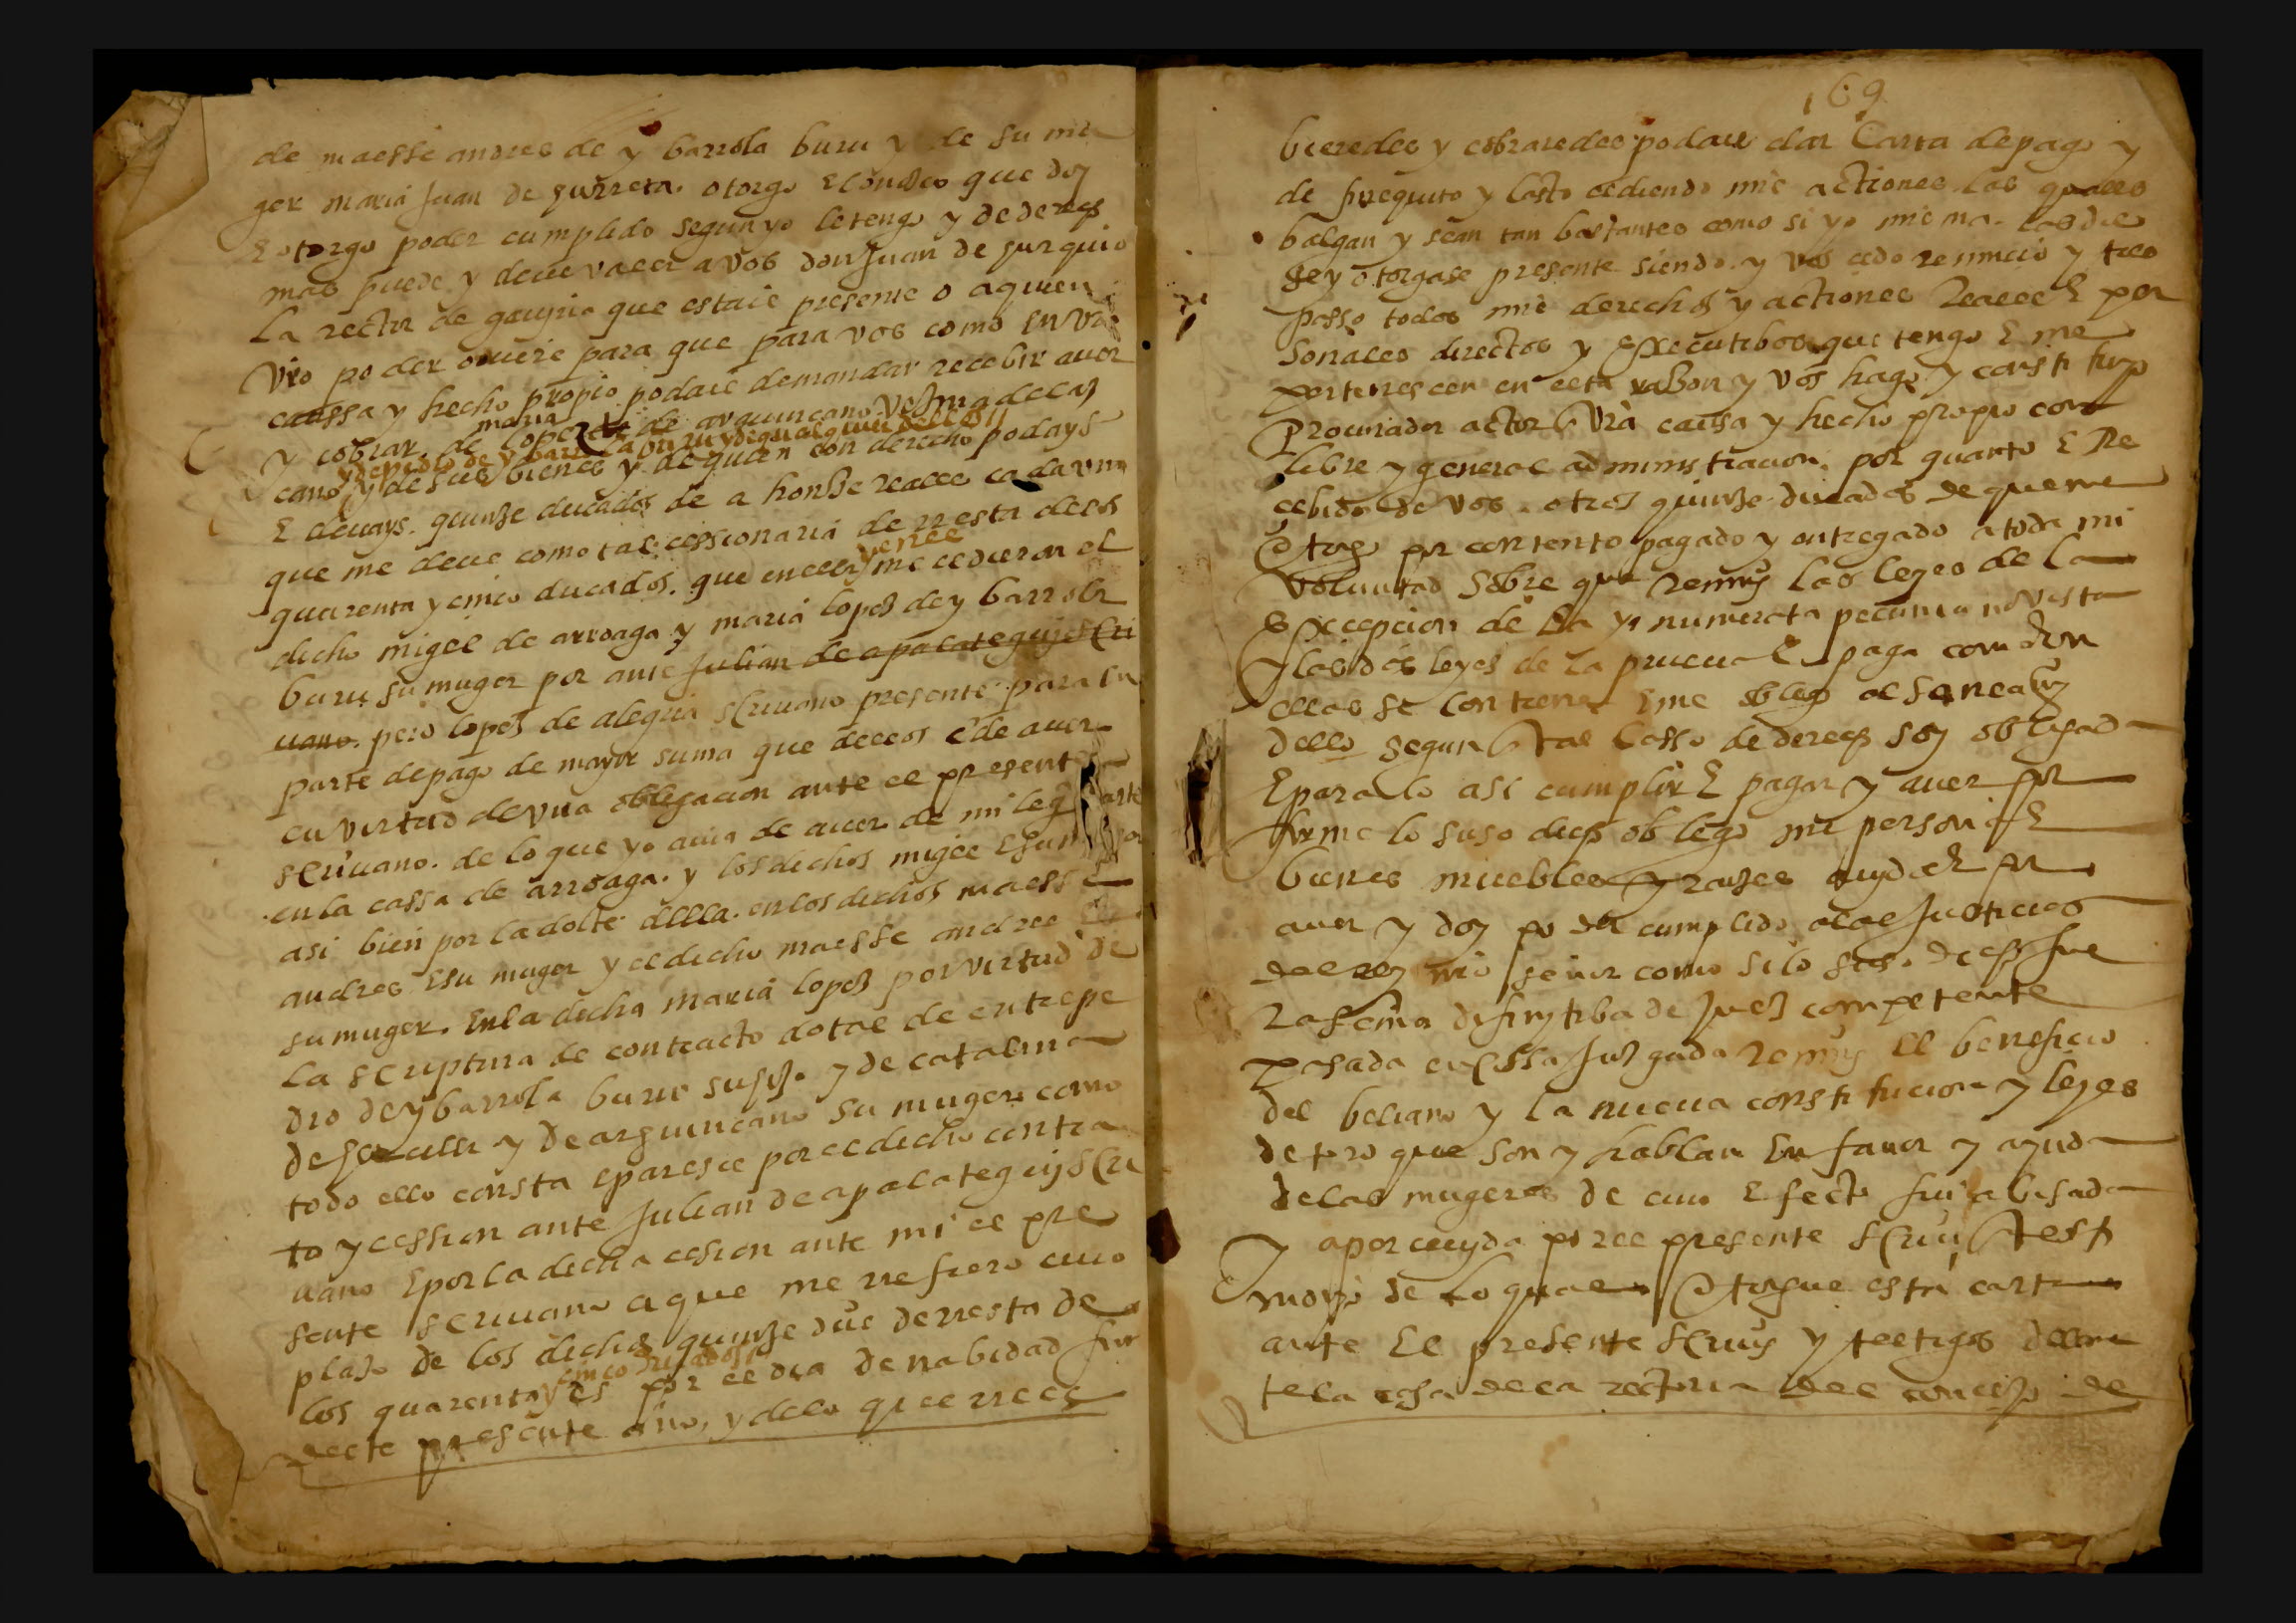 de maesse andres de ybarrola buru y de su mu
ger maria Juan de gurreta. otorgo E conozco que doy
E otorgo poder cumplido segun yo le tengo y de derecho
mas puede y deue valer a vos don Juan de gurquio
la rector de gaujria que estais presente o a quien
vro poder ouiere para que para vos como en vra
caussa y hecho propio podais demandar recebir auer
y cobrar. de maria lopez de arguincano vezina de leaz
y de pedro de ybarrola buru y de qualquier dellos
cano y de sus bienes y de quien con derecho podays
E deuays. quinze ducados de a honze reales cada uno
que me deue como tal cessionaria de rresta delos
quarenta y cinco ducados. que en ella y en el me cedieron el
dicho migel de arroaga y maria lopez de ybarrola
buru su muger por ante Julian de apalategui escri
uano. pero lopez de alegria scriuano presente para en
parte de pago de mayor suma que dellos e de auer
en virtud de vna obligacion ante el presente
scriuano. de lo que yo auia de auer de mi leg parte
en la cassa de arroaga. y los dichos migel E su muger
asi bien por la dolte della. en los dichos maesse
andres E su muger y el dicho maesse andres E
su muger. En la dicha maria lopez por virtud de
la scriptura de contracto dotal de entre pe
dro de ybarrola buru su hijo y de catalina
de y de arguincano su muger. como
todo ello consta E paresce por el dicho contra
to y cession ante Julian de apalategui scri
uano E por la dicha cesion ante mi el pre
sente scriuano a que me rrefiero cuio
plaso de los dichos quinze dus de rresta de
los quarenta y cinco ducados es por el dia de nabidad fin
deste presente año, y delo que rres
169
biereedes y cobraredes podais dar Carta de pago y
de finequito y lasto cediendo mis actiones las quales
balgan y sean tan bastantes como si yo misma las die
se y otorgase presente siendo. y vos cedo renuncio y tras
passo todos mis derechos y actiones Reales E per
sonales directos y Executibos que tengo E me
pertenescen en esta razon y vos hago y constituyo
Procurador actor En vra causa y hecho propio con
libre y general administracion. por quanto E Re
cebido de vos. otros quinze ducados de que me
Otorgo por contento pagado y entregado a toda mi
voluntad Sobre que Renuncio las leyes de la
Excepcion de la ynnumerata pecunia no vista
y las dos leyes de la prueua E paga como en
ellas se contiene E me obligo al saneamio
dello segun En tal casso de derecho soy obligada
E para lo asi cumplir E pagar y auer por
firme lo suso dicho obligo mi persona E
bienes muebles y rayzes auidos E por
auer y doy poder cumplido a las Justicias
del rey mio señor como si lo suso dicho fue
ra sentencia difinitiba de Juez competente
pasada en cossa Juzgada renuncio El beneficio
del beliano y la nueua constitucion y leyes
de toro que son y hablan En fauor y ayuda
de las mugeres de cuio Efecto fui abisada
y apercibida por el presente scriuano En testi
monio de lo qual Otorgue esta carta
ante El presente scriuano y testigos delan
te la casa de la rectoria del concejo de